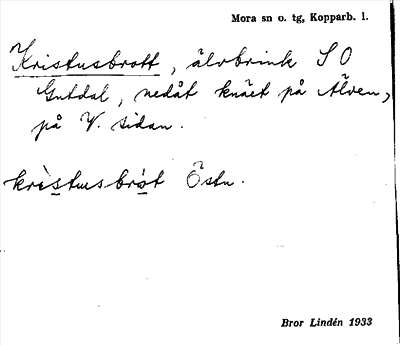 Mora sn o. tg, Kopparb. l.
Kristusbrott, älvbrink S O
Gutdal, nedåt knäet på Älven,
på V. sidan.
krìstusbròt Östn.
Bror Lindén 1933